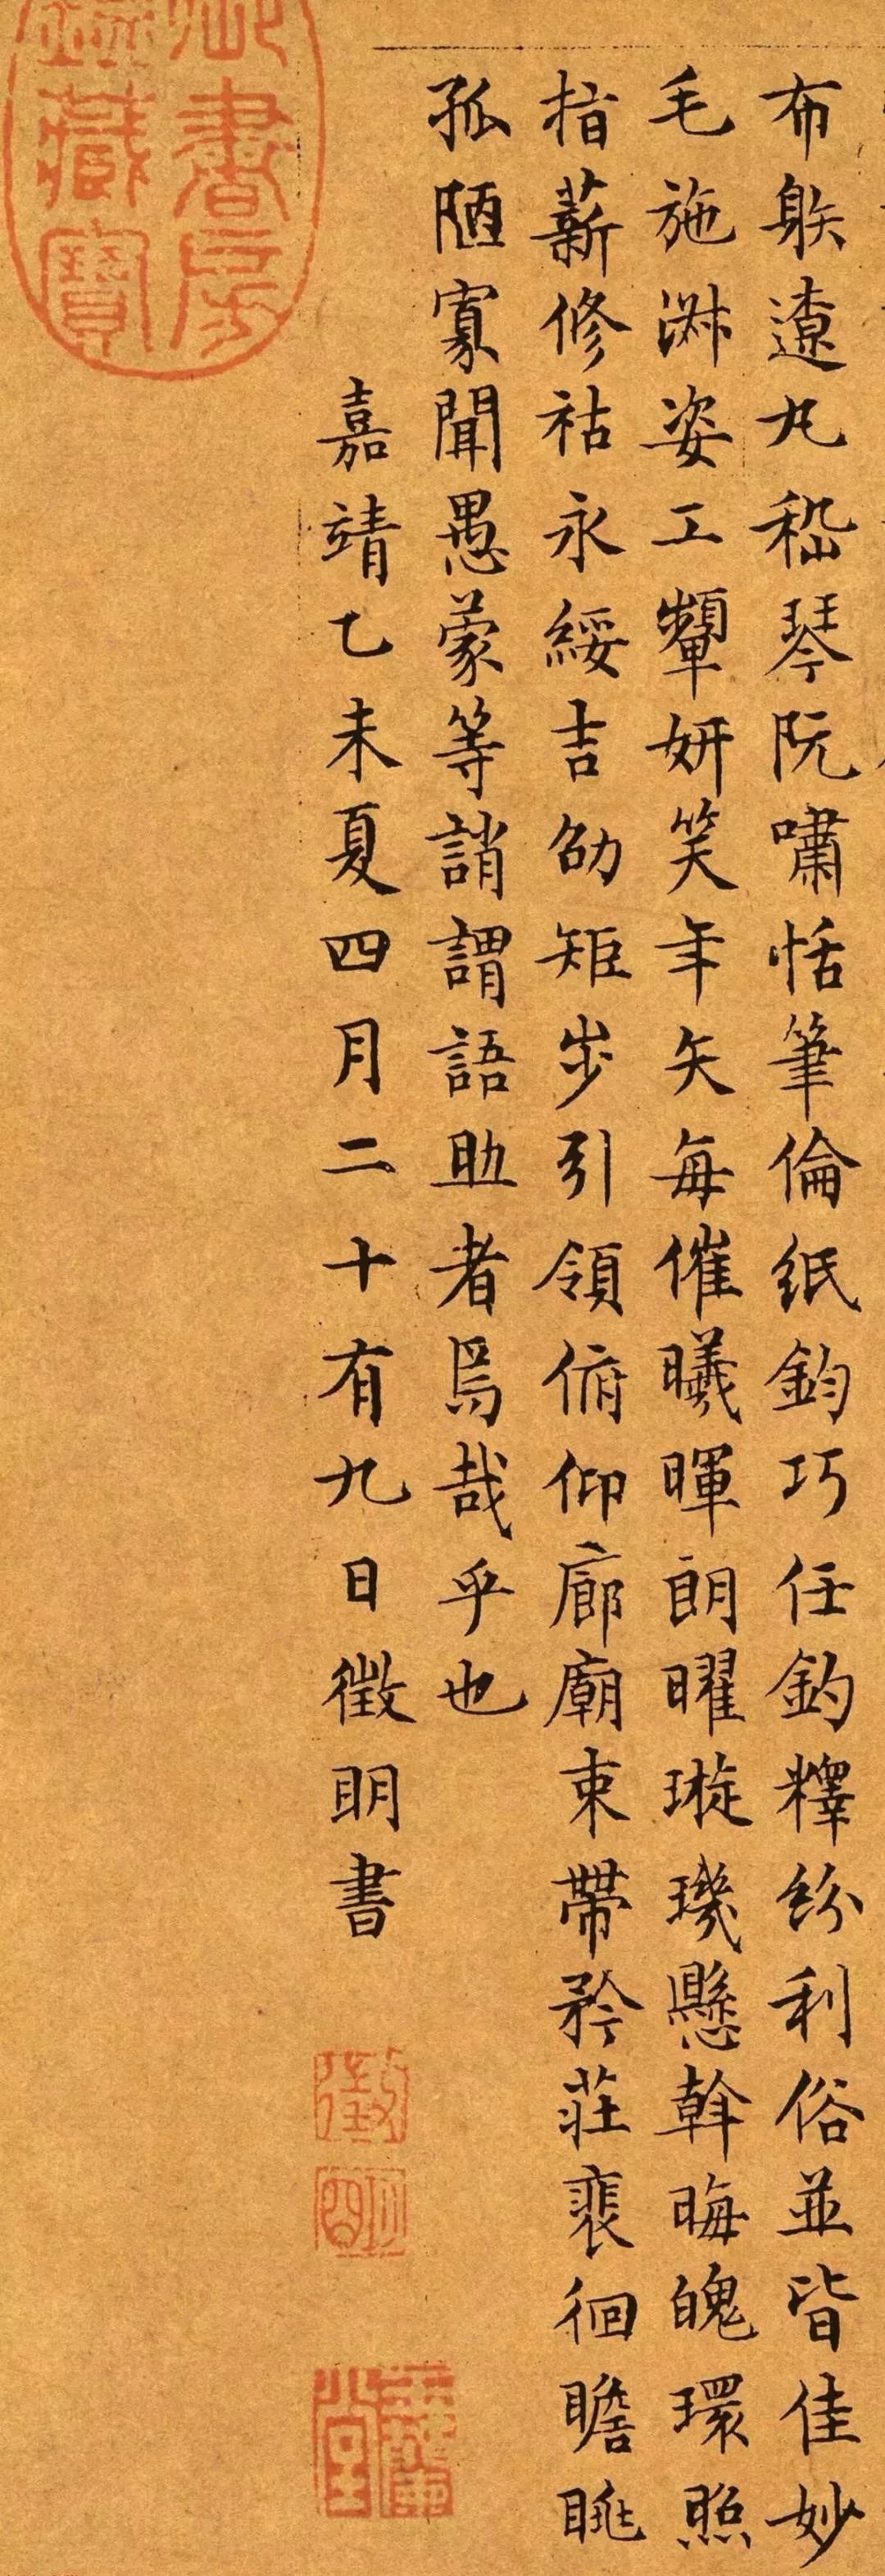 布躲遼丸嵇琴阮嘯恬筆倫紙鈞巧任釣釋紛利俗並皆佳妙
毛施淑姿工顰妍笑年矢每催曦暉朗曜璇璣懸斡晦魄環照
指薪修祜永綏吉劭矩步引領俯仰廊廟束帶矜莊裴徊瞻眺
孤陋寡聞愚蒙等誚謂語助者焉哉乎也
嘉靖乙未夏四月二十有九日徵明書
御書房
鑑藏寶
徵
明